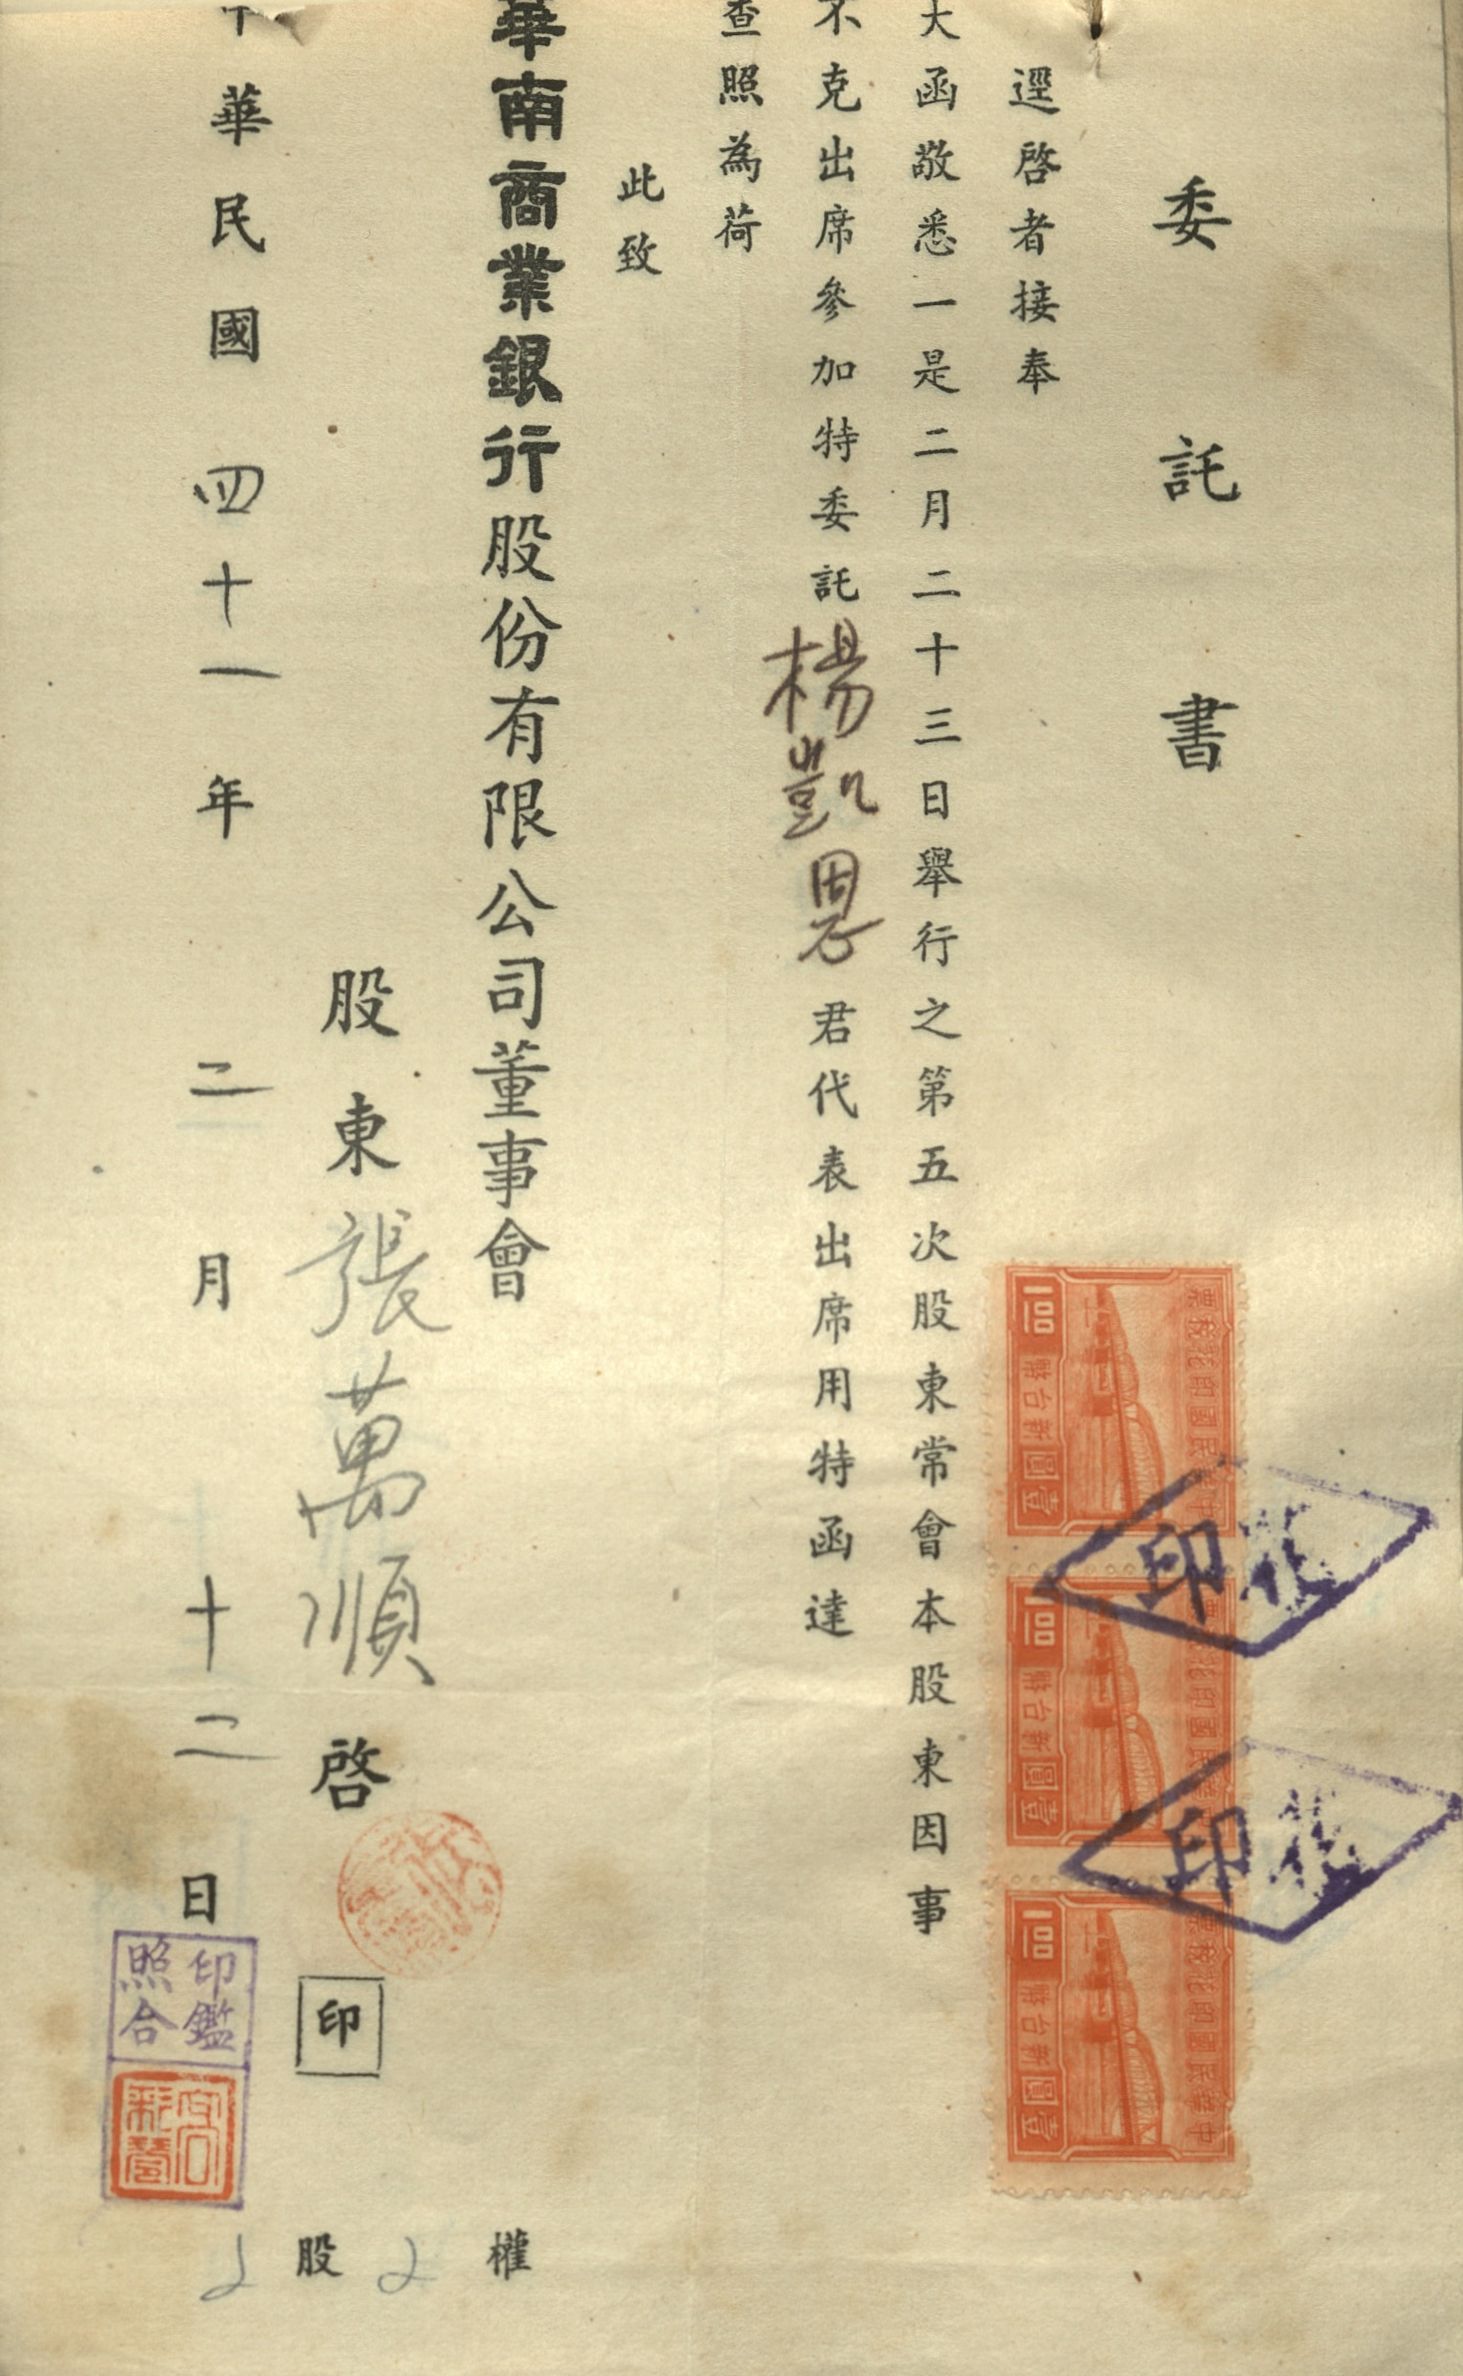 委託書
逕啓者接奉
大函敬悉一是二月二十三日舉行之第五次股東常會本股東因事
不克出席參加特委託楊凱恩君代表出席用特函達
查照為荷
此致
華南商業銀行股份有限公司董事會
股東張萬順啓
印
中華民國四十一年二月十二日
印鑑
照合
股權
中華民國印花稅票
壹圓新台幣
1.00
中華民國印花稅票
壹圓新台幣
1.00
中華民國印花稅票
壹圓新台幣
1.00
印花
印花